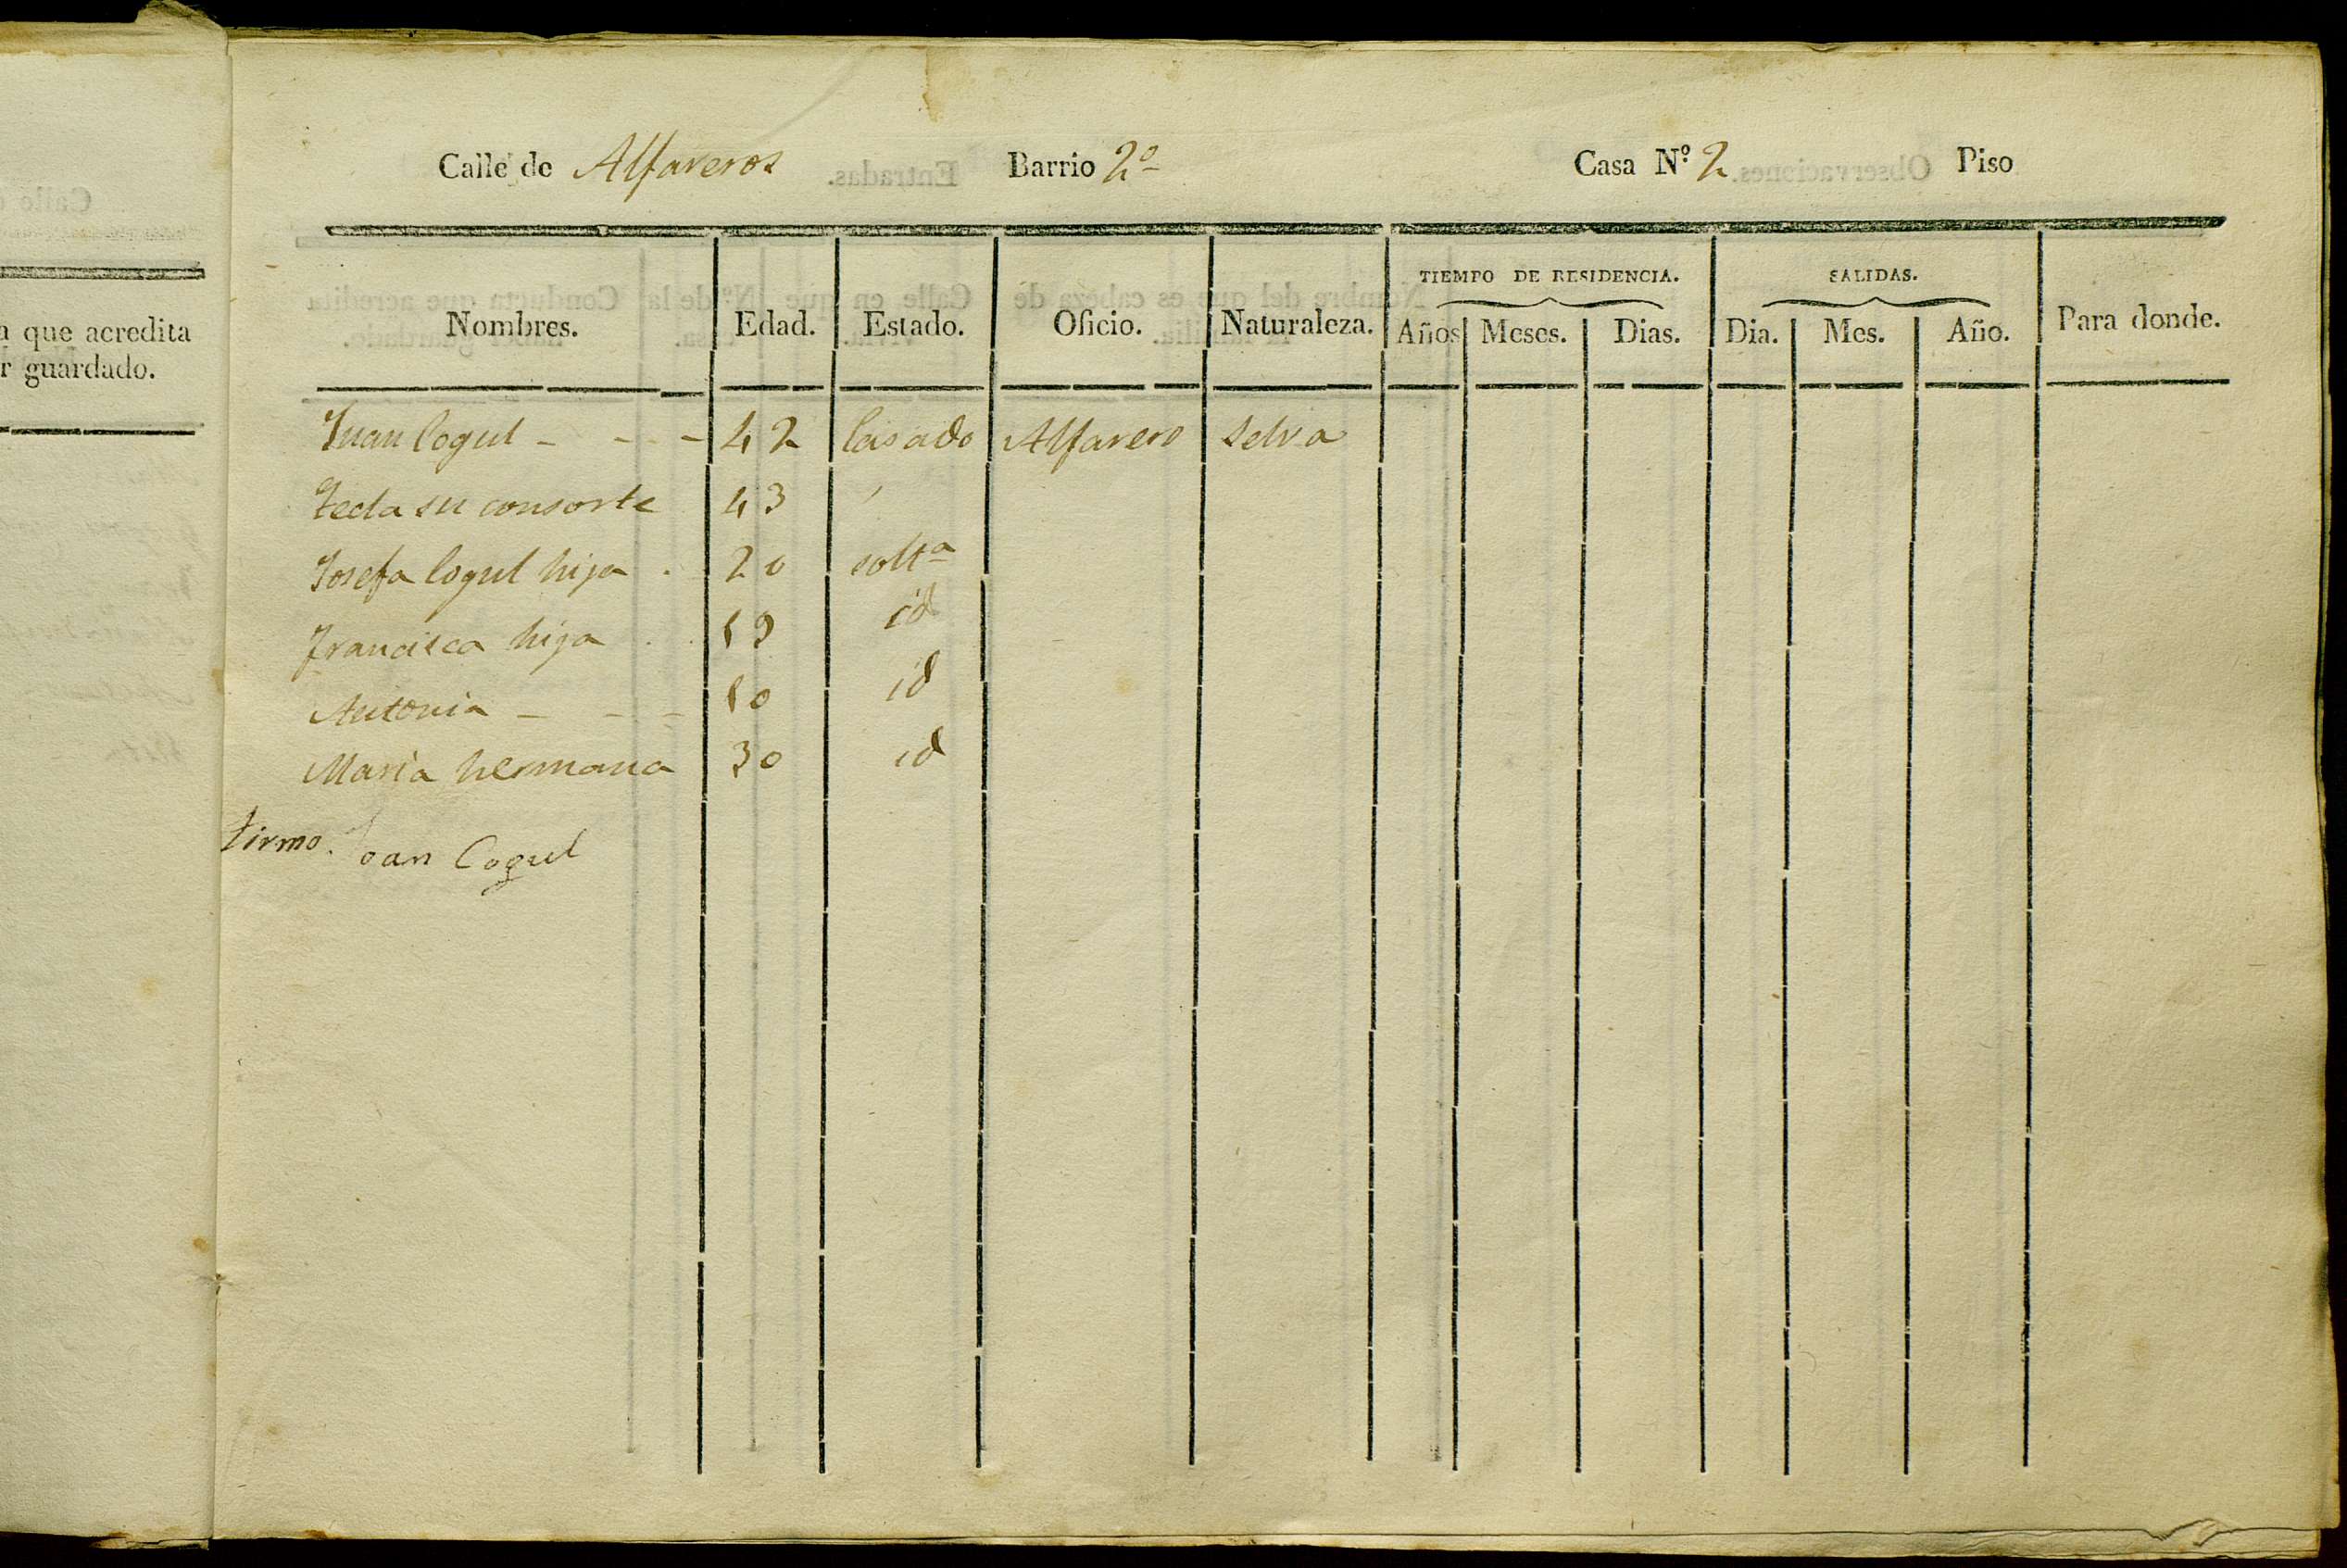 Calle de Alfareros Barrio 2º Casa Nº 2 Piso
TIEMPO DE RESIDENCIA. SALIDAS.
Nombres. Edad. Estado. Oficio. Naturaleza. Años Meses. Dias. Dia. Mes. Año. Para donde.
a que acredita
r guardado.
Juan Cogul - - - 42 Casado Alfarero Selva
Tecla su consorte 43
Josefa Cogul hija . 20 soltª
Francisca hija . . 19 id
Antonia - - - 10 id
Maria hermana 30 id
Firmo. Joan Cogul